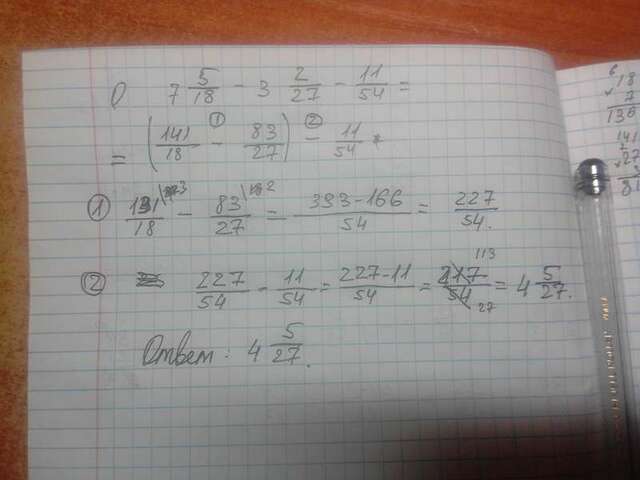 7 5/18 - 3 2/27 - 11/54 =
= (141/18 - 83/27) - 11/54
① 131/18 \3 - 83/27 \2 = 393-166/54 = 227/54.
② 227/54 - 11/54 = 227-11/54 = 217/54 113 27 = 4 5/27.
Ответ: 4 5/27.
18
7
136
141
27
3